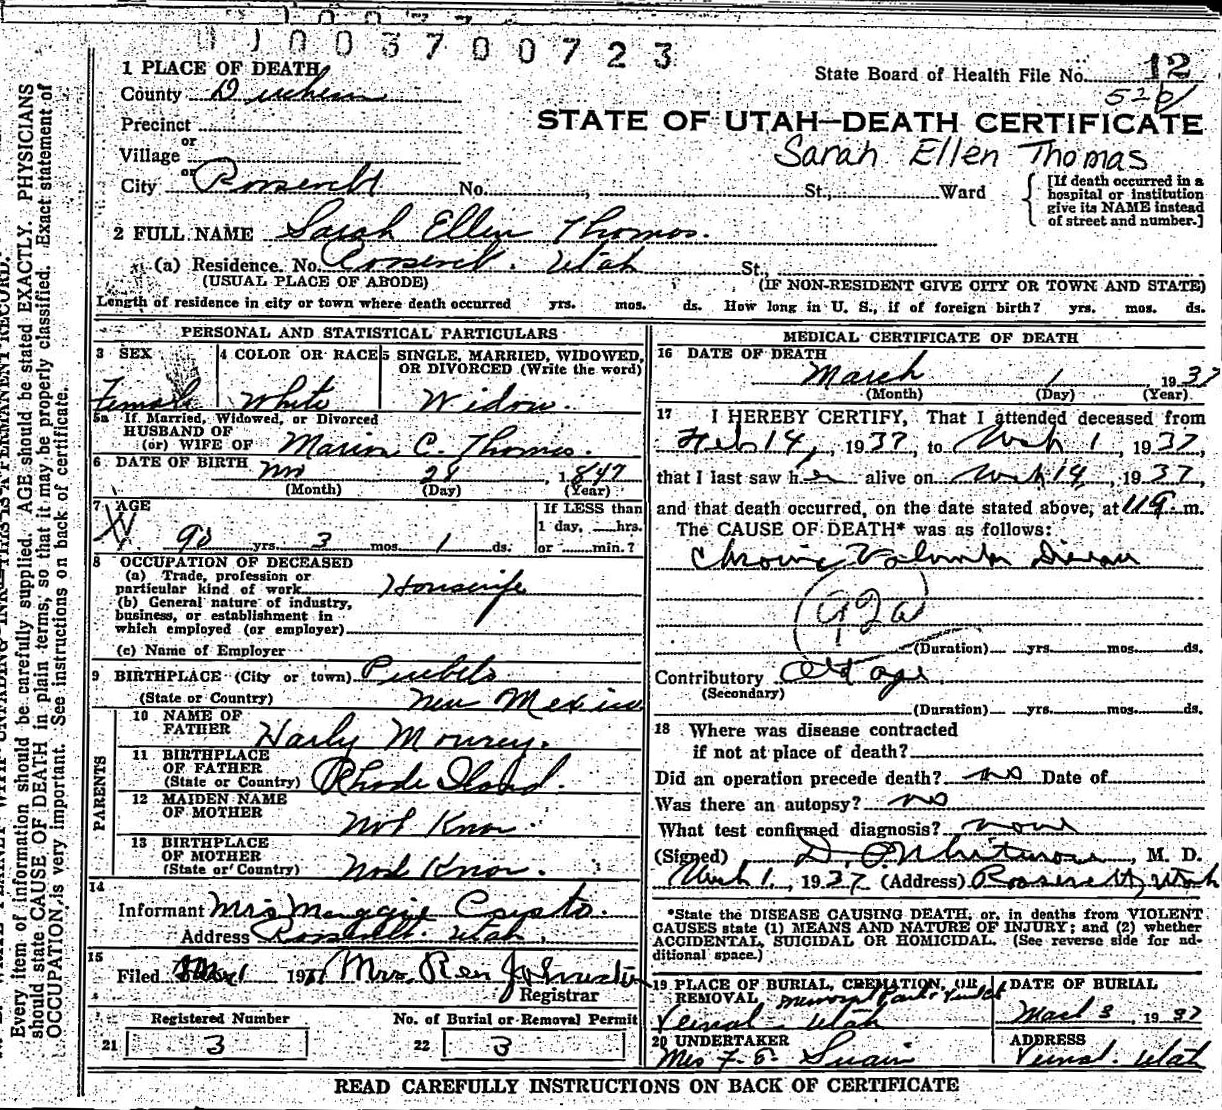 0 1 0 0 3 7 0 0 7 2 3
1 PLACE OF DEATH
County
Precinct
or
Village
or
City Roosevelt No. St., Ward
State Board of Health File No. 12
STATE OF UTAH—DEATH CERTIFICATE
Sarah Ellen Thomas
[If death occurred in a
hospital or institution
give its NAME instead
of street and number.]
2 FULL NAME Sarah Ellen Thomas.
(a) Residence. No. Roosevelt. Utah St.,
(USUAL PLACE OF ABODE) (IF NON-RESIDENT GIVE CITY OR TOWN AND STATE)
Length of residence in city or town where death occurred yrs. mos. ds. How long in U. S., if of foreign birth? yrs. mos. ds.
PERSONAL AND STATISTICAL PARTICULARS
3 SEX
Female
4 COLOR OR RACE
White
5 SINGLE, MARRIED, WIDOWED,
OR DIVORCED (Write the word)
Widow.
5a If Married, Widowed, or Divorced
HUSBAND OF
(or) WIFE OF Marion C. Thomas.
6 DATE OF BIRTH 28, 1847
(Month) (Day) (Year)
7 AGE
90 yrs. 3 mos. 1 ds.
If LESS than
1 day, hrs.
or min.?
8 OCCUPATION OF DECEASED
(a) Trade, profession or
particular kind of work Housewife
(b) General nature of industry,
business, or establishment in
which employed (or employer)
(c) Name of Employer
9 BIRTHPLACE (City or town) Pueblo
(State or Country) New Mexico
PARENTS
10 NAME OF
FATHER Harly Mourey.
11 BIRTHPLACE
OF FATHER
(State or Country) Rhode Iland.
12 MAIDEN NAME
OF MOTHER Not Know.
13 BIRTHPLACE
OF MOTHER
(State or Country) Not Know.
14
Informant Mrs Maggie
Address Roosevelt. Utah.
15
Filed 1937 Mrs. Ren Johnston
Registrar
Registered Number
21 3
No. of Burial or Removal Permit
22 3
MEDICAL CERTIFICATE OF DEATH
16 DATE OF DEATH
March 1, 1937
(Month) (Day) (Year)
17 I HEREBY CERTIFY, That I attended deceased from
Feb 14, 1937, to Mch 1, 1937,
that I last saw her alive on, 1937,
and that death occurred, on the date stated above, at m.
The CAUSE OF DEATH* was as follows:
Chronic Valvular Disease
92a
(Duration) yrs. mos. ds.
Contributory Old age.
(Secondary)
(Duration) yrs. mos. ds.
18 Where was disease contracted
if not at place of death?
Did an operation precede death? no Date of
Was there an autopsy? no
What test confirmed diagnosis? none
(Signed), M. D.
Mch 1., 1937 (Address) Roosevelt, Utah
*State the DISEASE CAUSING DEATH, or, in deaths from VIOLENT
CAUSES state (1) MEANS AND NATURE OF INJURY; and (2) whether
ACCIDENTAL, SUICIDAL OR HOMICIDAL. (See reverse side for ad-
ditional space.)
19 PLACE OF BURIAL, CREMATION, OR
REMOVAL Memorial Park
Vernal - Utah
DATE OF BURIAL
March 3, 1937
20 UNDERTAKER
Mrs Swain
ADDRESS
Vernal. Utah
READ CAREFULLY INSTRUCTIONS ON BACK OF CERTIFICATE
Every item of information should be carefully supplied. AGE should be stated EXACTLY. PHYSICIANS
should state CAUSE OF DEATH in plain terms, so that it may be properly classified. Exact statement of
OCCUPATION is very important. See instructions on back of certificate.